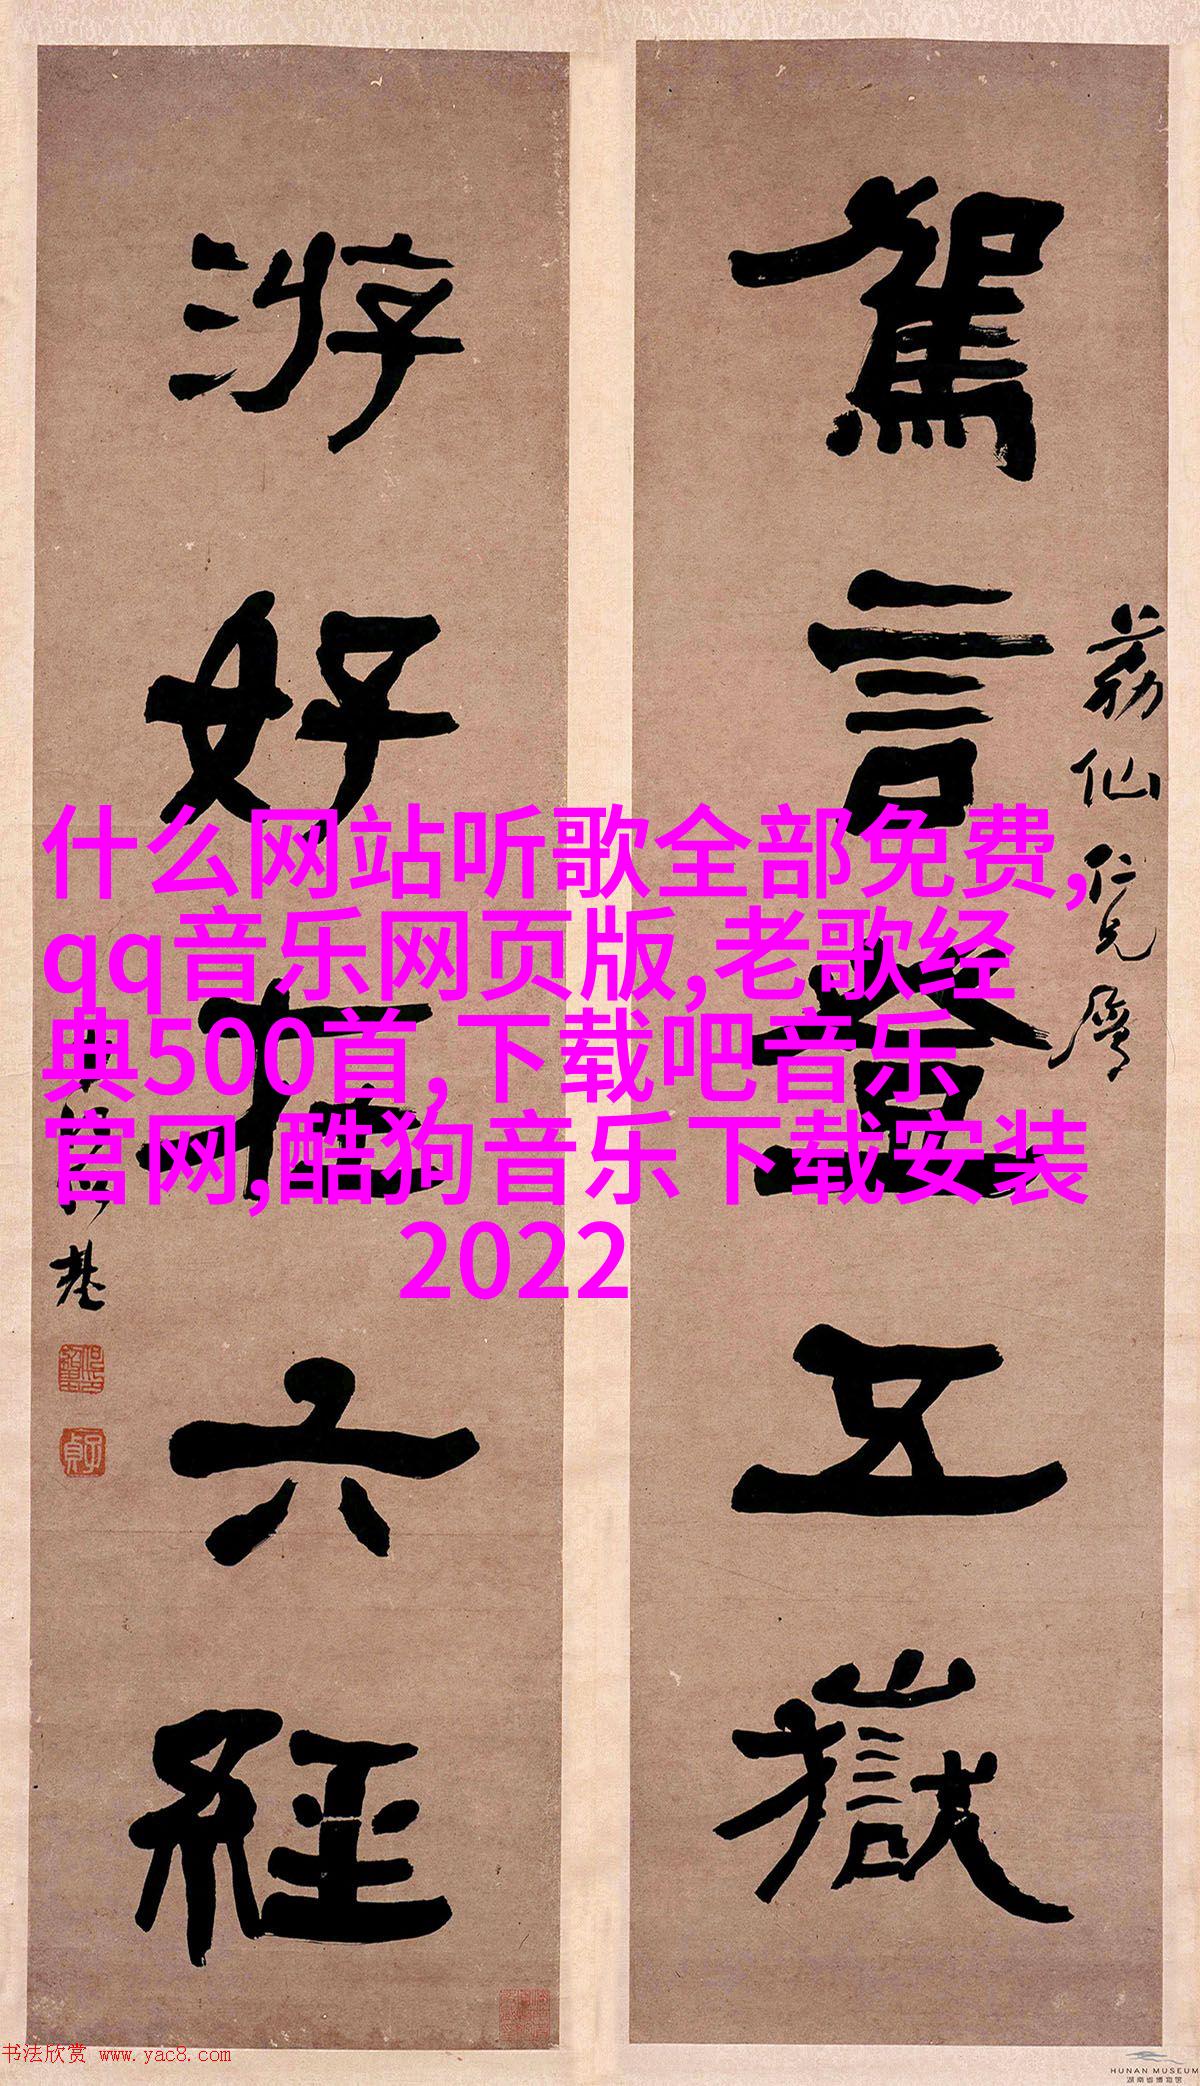 駕言登五嶽
荔仙仁兄属
游好在六經
何紹基
什么网站听歌全部免费,
qq音乐网页版,老歌经
典500首,下载吧音乐
官网,酷狗音乐下载安装
2022
子貞
书法欣赏 www.yac8.com
HUNAN MUSEUM
湖南省博物馆